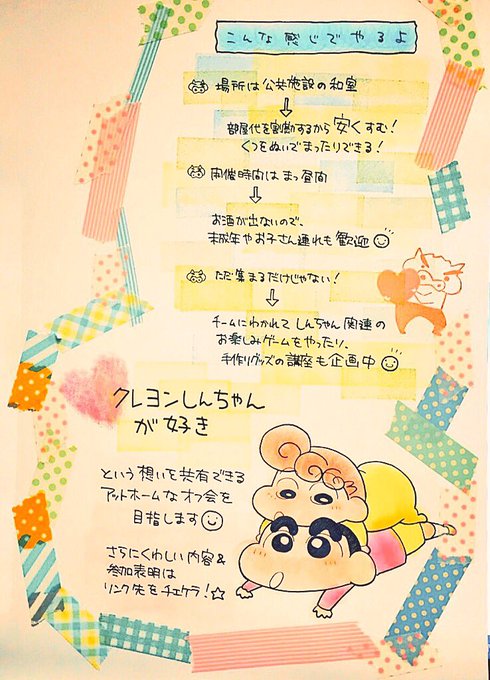 こんな感じでやるよ
場所は公共施設の和室
部屋代を割勘するから安くすむ!
くつをぬいでまったりできる!
開催時間はまっ昼間
お酒が出ないので、
未成年やお子さん連れも歓迎
ただ集まるだけじゃない!
チームにわかれてしんちゃん関連の
お楽しみゲームをやったり、
手作りグッズの講座も企画中
クレヨンしんちゃん
が好き
という想いを共有できる
アットホームなオフ会を
目指します
さらにくわしい内容&
参加表明は
リンク先をチェケラ!☆